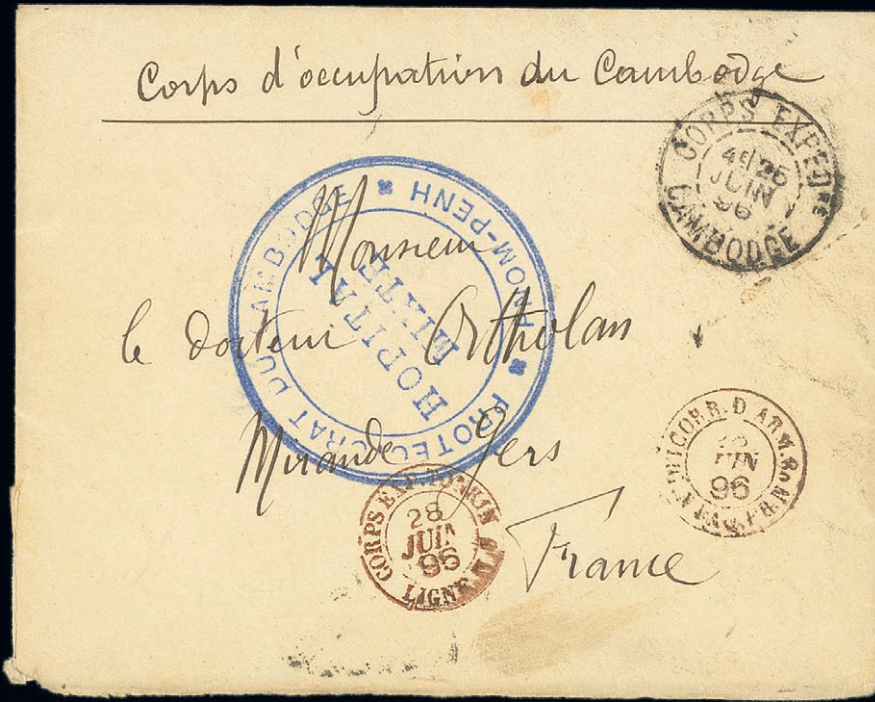 Corps d'occupation du Cambodge
CORPS EXPED
4E 26
JUIN
96
CAMBODGE
PROTECTORAT DU CAMBODGE
PHNOM-PENH
HOPITAL
MIXTE
Monsieur
le docteur Ortholan
Mirande Gers
France
CORPS EXP. TONKIN
28
JUIN
96
LIGNE
CORR. D ARM.
JUIN
96